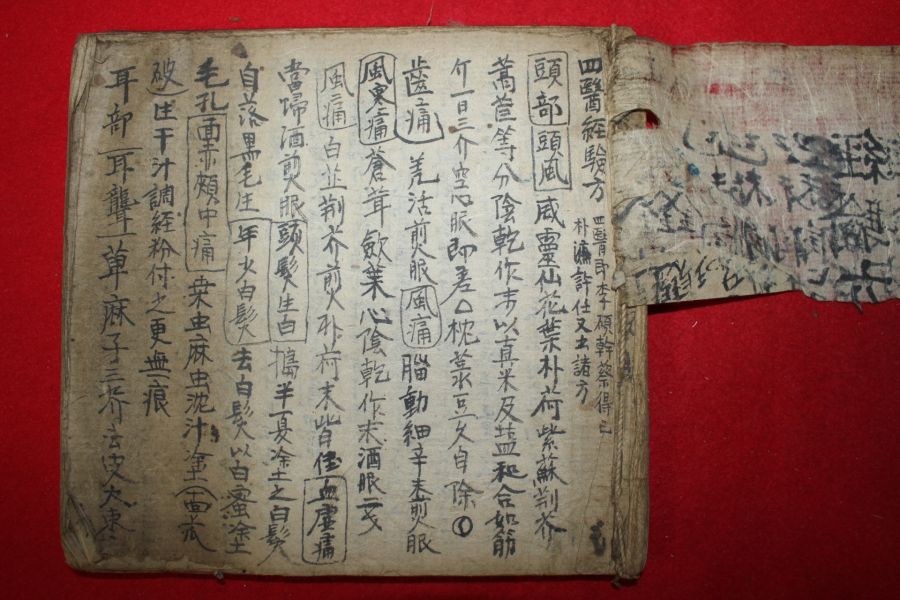 四醫經驗方
四醫即李碩幹蔡得己
朴濂許任又出諸方
頭部 頭風 威靈仙花葉朴荷紫蘇荊芥
蒿苣等分陰乾作末以真米及塩和合如筋
介一日三介空心服即差△枕菉豆久自除
齒痛 羌活煎服 風痛 腦動細辛末煎服
風寒痛 蒼茸嫩葉心陰乾作末酒服二戋
風痛 白芷荊芥煎朴荷末皆佳 血虛痛
當歸酒煎服 頭髮生白 搗半夏塗之白髮
自落黑毛生 年少白髮 去白髮以白蜜塗
毛孔 面赤頰中痛 桑虫麻虫沈汁塗 面瓜
破 生干汁調經粉付之更無痕
耳部 耳聾 草麻子三 去皮大棗